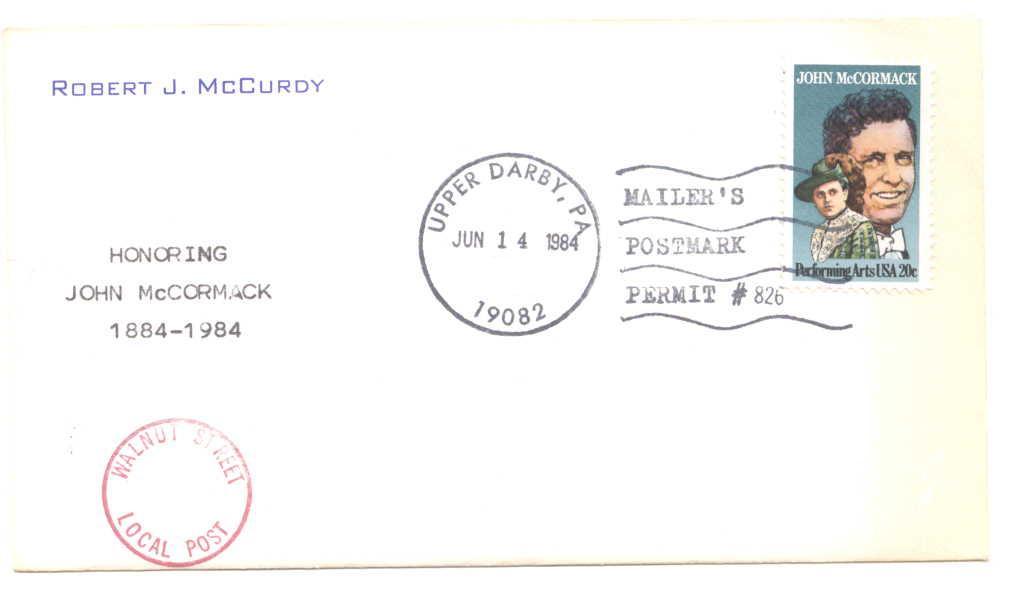 ROBERT J. MCCURDY
JOHN McCORMACK
Performing Arts USA 20c
UPPER DARBY, PA
JUN 14 1984
19082
MAILER'S
POSTMARK
PERMIT # 826
HONORING
JOHN McCORMACK
1884-1984
WALNUT STREET
LOCAL POST